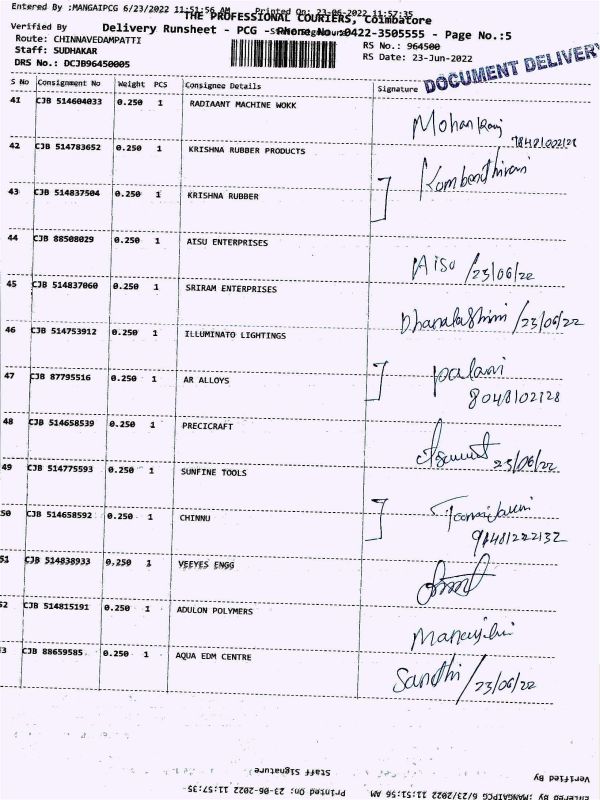 Entered By :MANGAIPCG 6/23/2022 11:51:56 AM Printed On: 23-06-2022 11:57:35
THE PROFESSIONAL COURIERS, Coimbatore
Verified By
Delivery Runsheet - PCG - Phone No :0422-3505555 - Page No.:5
Route: CHINNAVEDAMPATTI
RS No.: 964500
Staff: SUDHAKAR
RS Date: 23-Jun-2022
DRS No.: DCJB96450005
DOCUMENT DELIVERY
S No Consignment No Weight PCS Consignee Details Signature
41 CJB 514604033 0.250 1 RADIAANT MACHINE WOKK
42 CJB 514783652 0.250 1 KRISHNA RUBBER PRODUCTS
43 CJB 514837504 0.250 1 KRISHNA RUBBER
44 CJB 88508029 0.250 1 AISU ENTERPRISES
Aisu /23/06/22
45 CJB 514837060 0.250 1 SRIRAM ENTERPRISES
/23/06/22
46 CJB 514753912 0.250 1 ILLUMINATO LIGHTINGS
palani
47 CJB 87795516 0.250 1 AR ALLOYS
8048102128
48 CJB 514658539 0.250 1 PRECICRAFT
23/06/22
49 CJB 514775593 0.250 1 SUNFINE TOOLS
50 CJB 514658592 0.250 1 CHINNU
51 CJB 514838933 0.250 1 VEEYES ENGG
52 CJB 514815191 0.250 1 ADULON POLYMERS
53 CJB 88659585 0.250 1 AQUA EDM CENTRE
Sandhi /23/06/22
Staff Signature
Verified By
Printed On: 23-06-2022 11:57:35
Entered By :MANGAIPCG 6/23/2022 11:51:56 AM